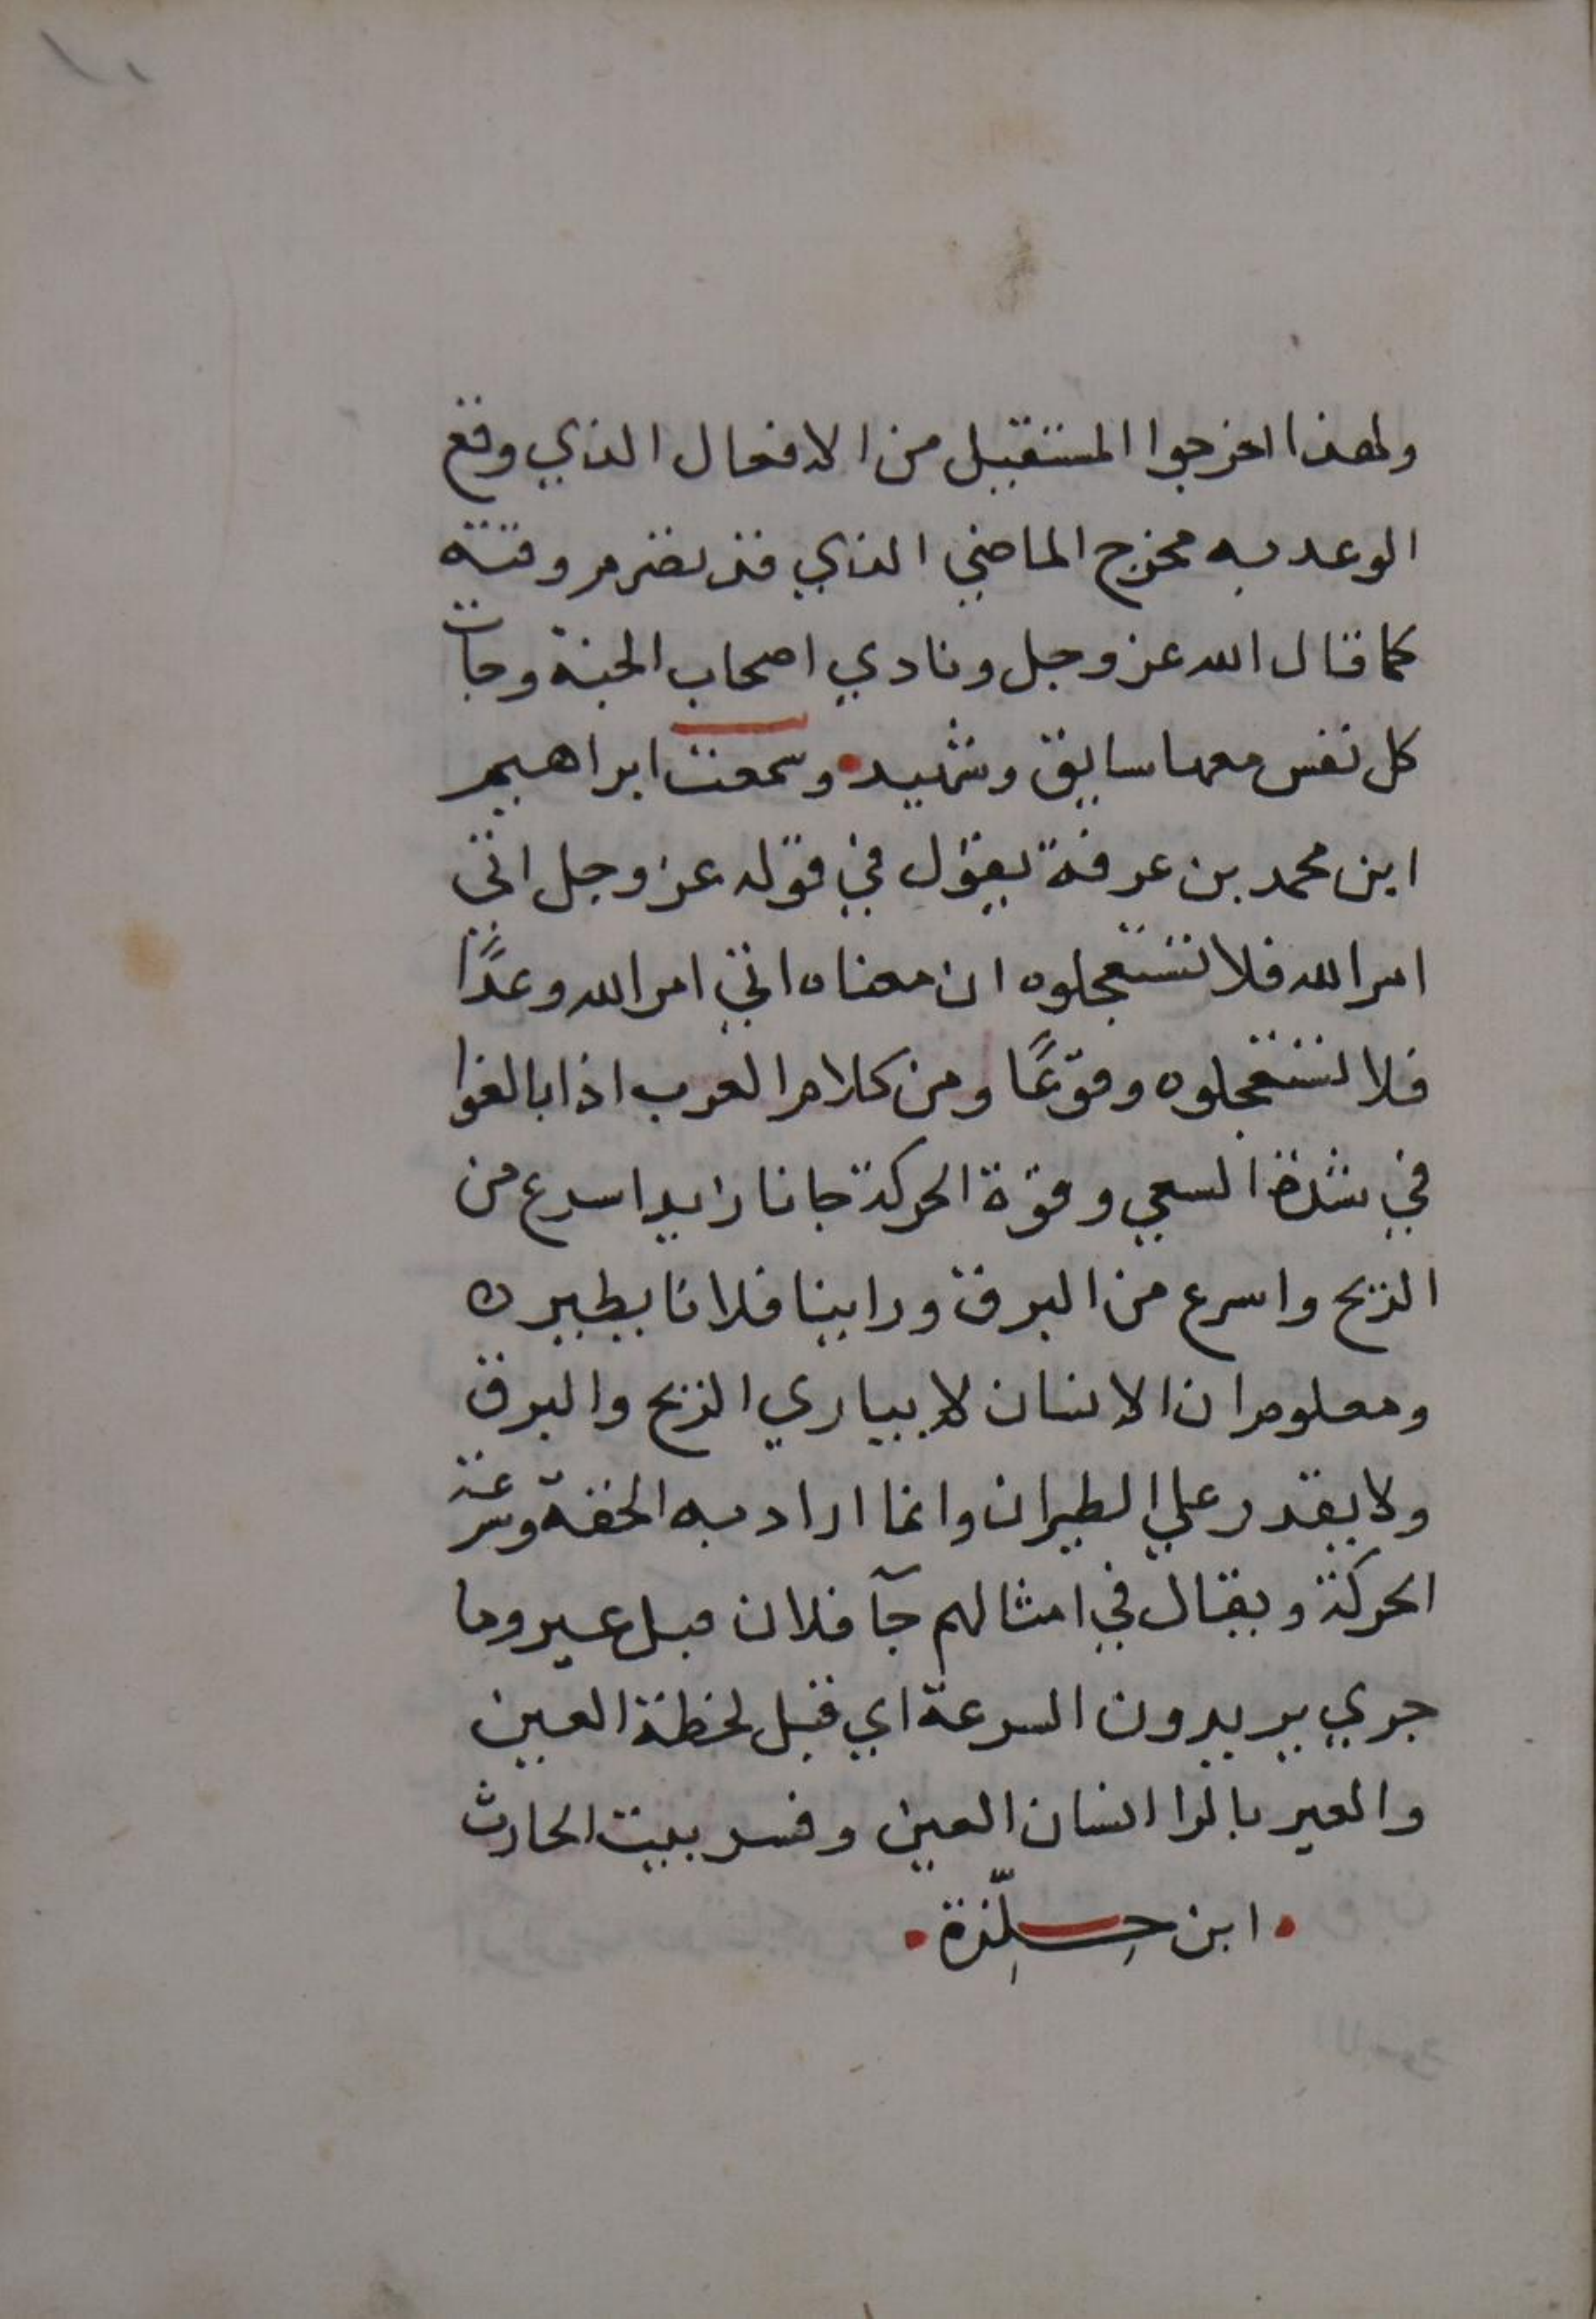 ١٠
ولهذا اخرجوا المستقبل من الافعال الذي وقع
الوعد به مخرج الماضي الذي قد تصرم وقته
كما قال الله عز وجل ونادي اصحاب الجنة وجات
كل نفس معها سايق وشهيد وسمعت ابراهيم
ابن محمد بن عرفة يقول في قوله عز وجل اتي
امر الله فلا تستعجلوه ان معناه اتي امر الله وعدًا
فلا تستعجلوه وقوعًا ومن كلام العرب اذا بالغوا
في شدة السعي وقوة الحركة جانا زايدا اسرع من
الريح واسرع من البرق وراينا فلانا يطير ه
ومعلوم ان الانسان لا يباري الريح والبرق
ولا يقدر علي الطيران وانما اراد به الخفة وسرعة
الحركة ويقال في امثالهم جآ فلان قبل عير وما
جري يريدون السرعة اي قبل لحظة العين
والعير بالرا انسان العين وفسر بيت الحارث
• ابن حِلِّزة •